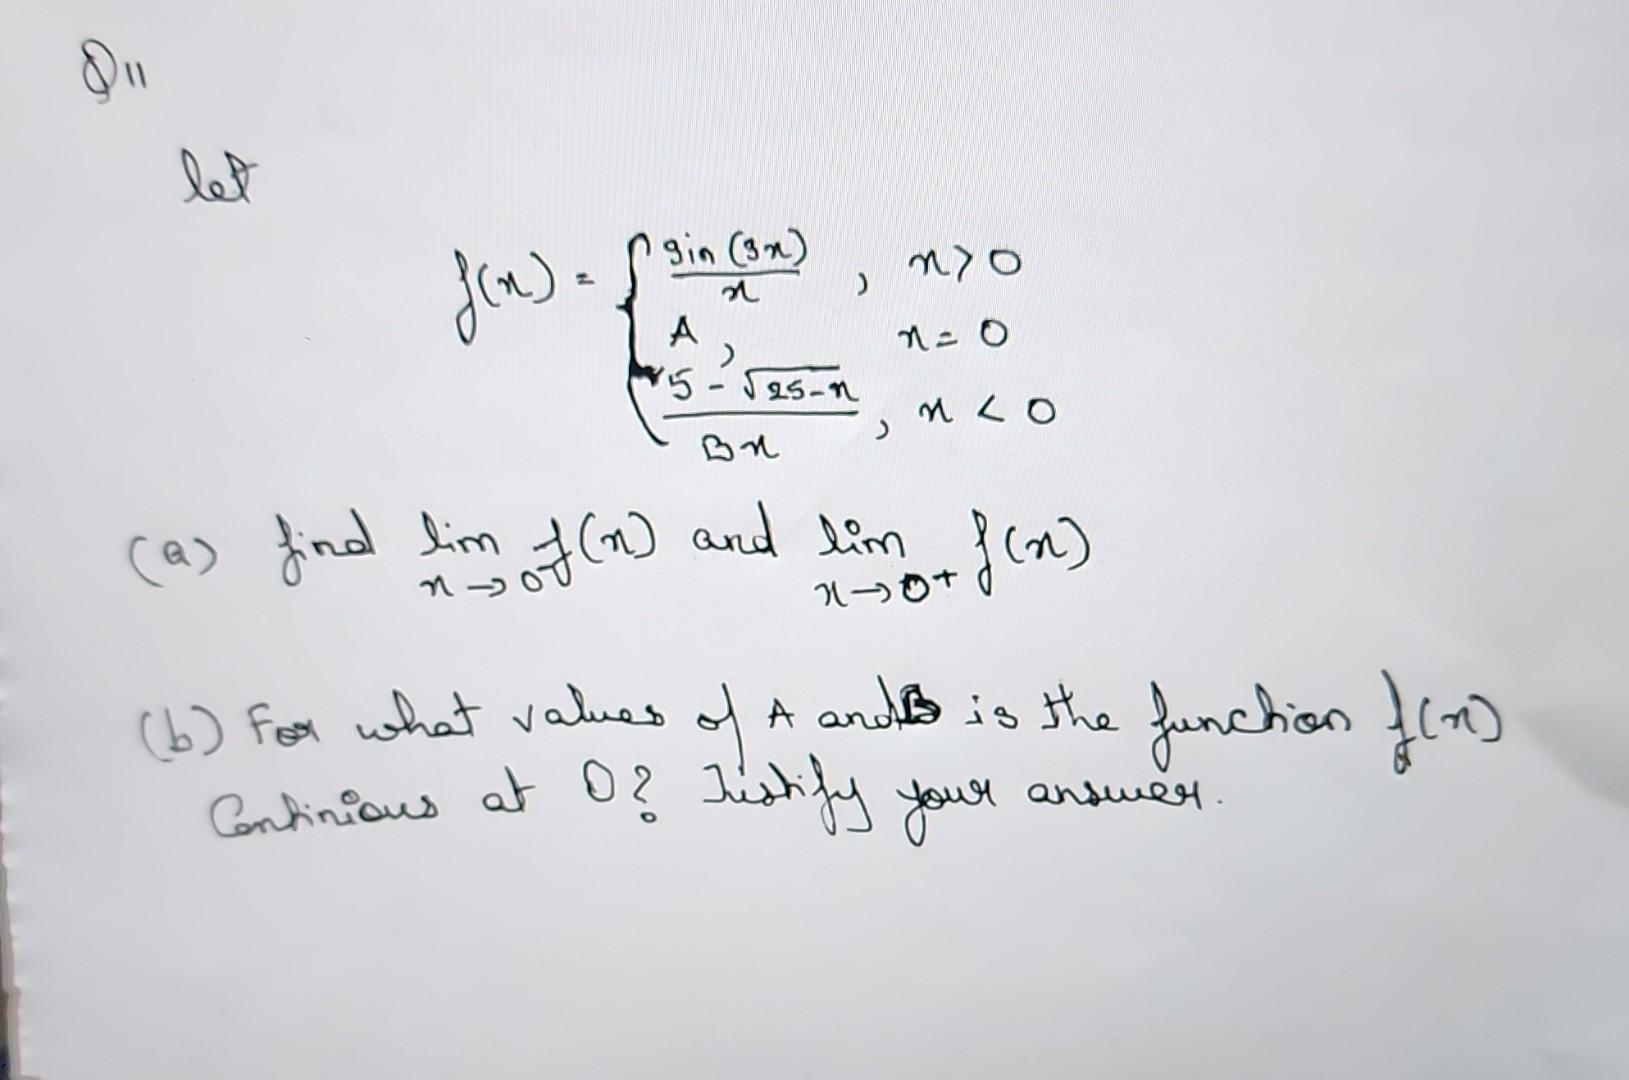 Q11
let
f(x) = { sin(3x)/x , x>0
A, x=0
5-√25-x / Bx , x<0
(a) find lim x→0⁻ f(x) and lim x→0+ f(x)
(b) For what values of A and B is the function f(x)
Continious at 0? Justify your answer.